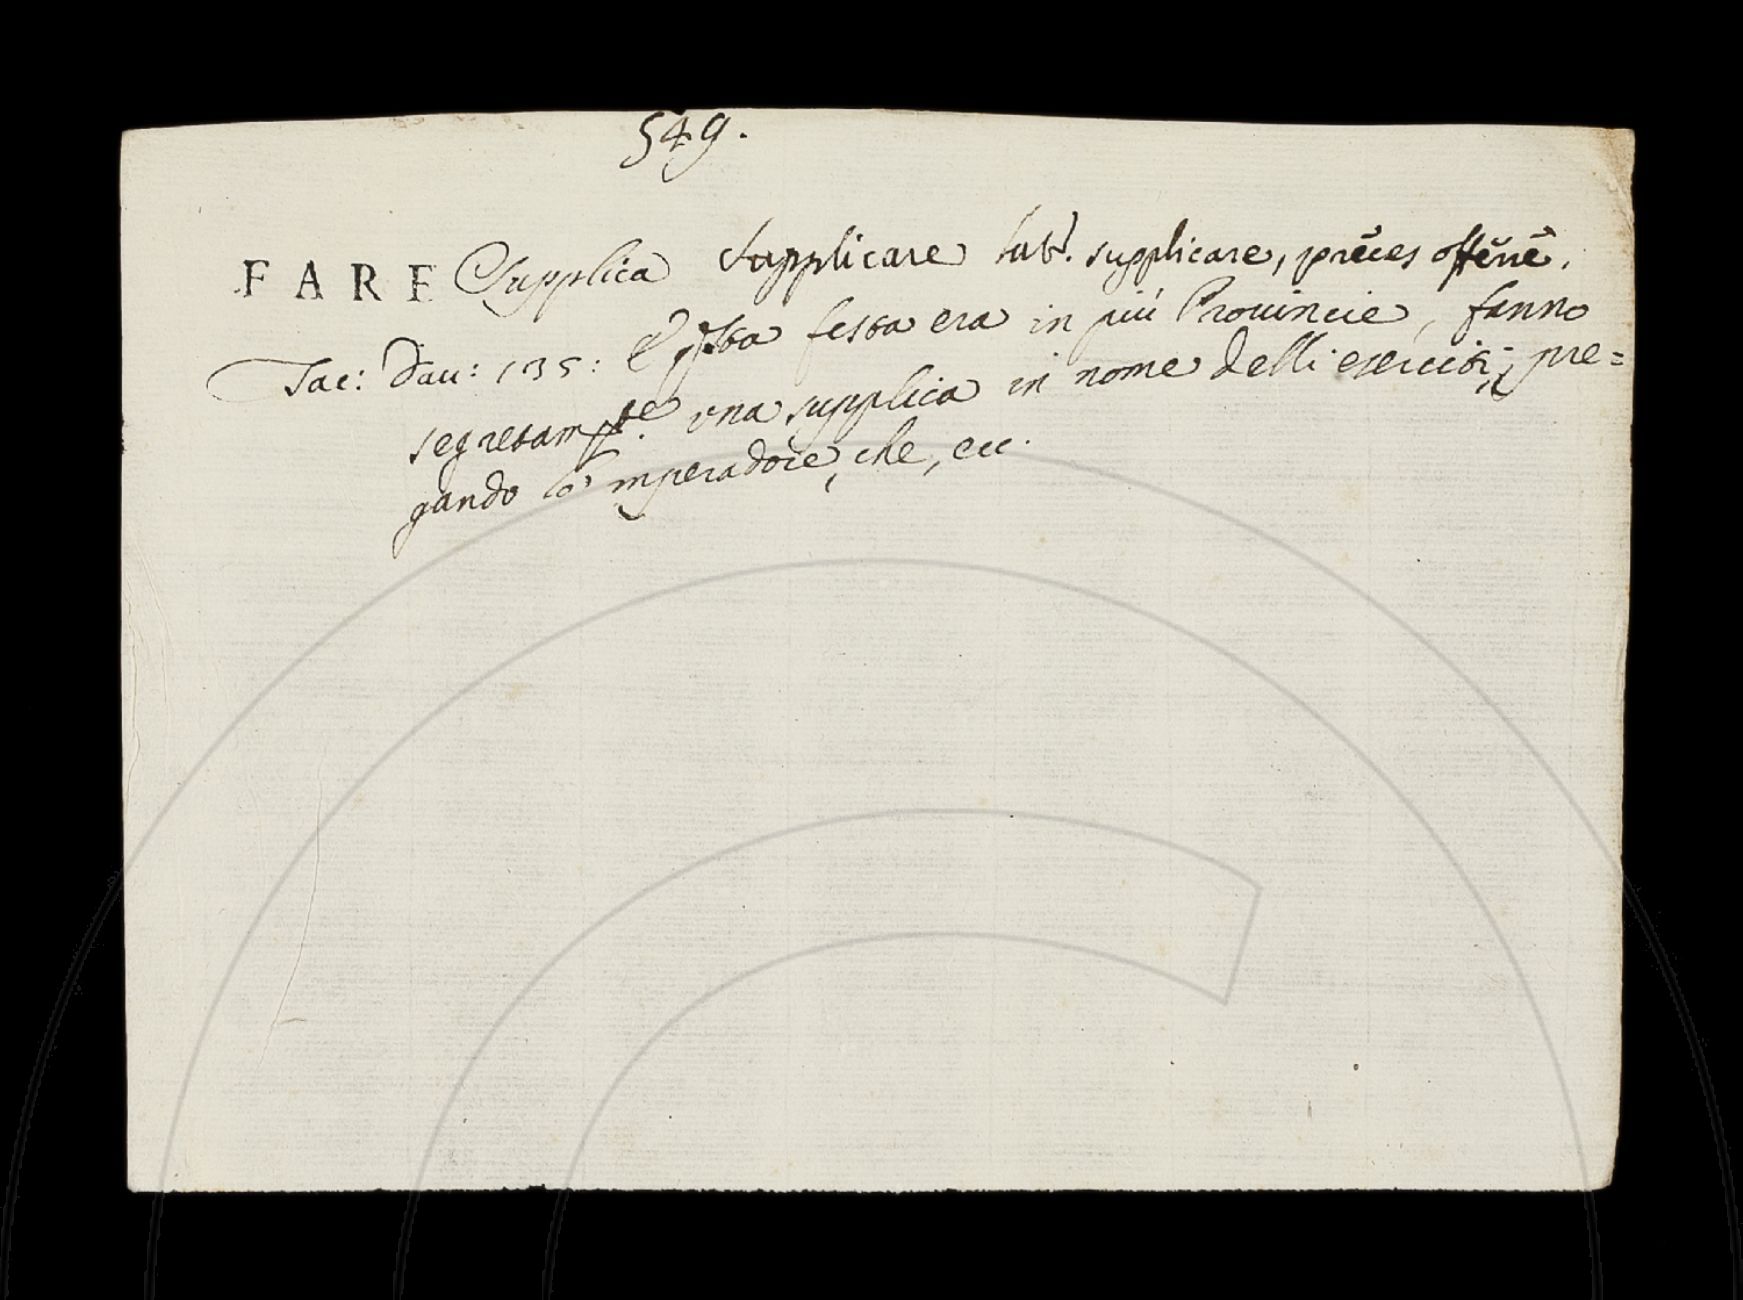 549.
FARE Supplica Supplicare lat. supplicare, preces offerre.
Tac: Dav: 135: E q̃sta festa era in più Provincie, fanno
segretam.te una supplica in nome delli eserciti; pre=
gando lo'mperadore, che, ecc.